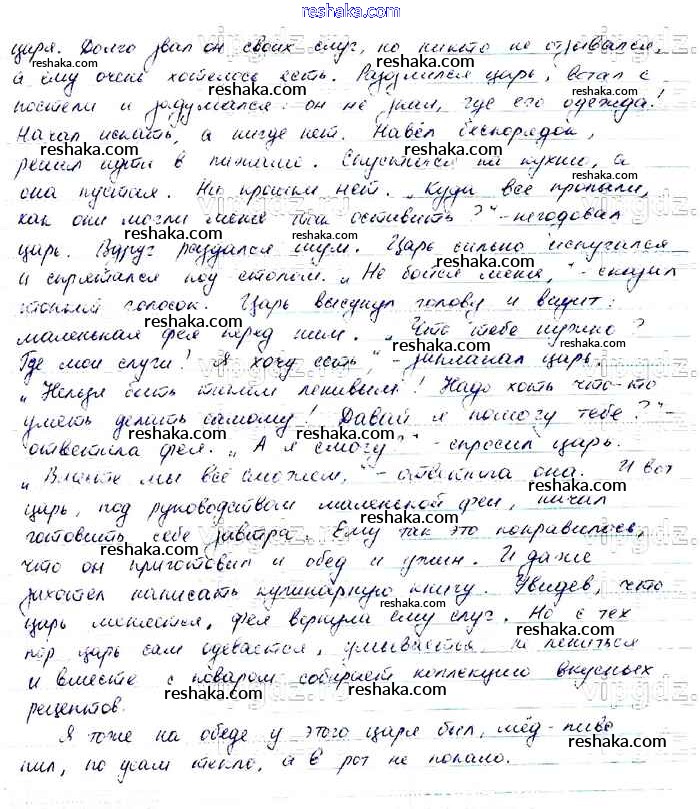 reshaka.com
царя. Долго звал он своих слуг, но никто не отзывался,
а ему очень хотелось есть. Разозлился царь, встал с
постели и задумался: он не знал, где его одежда!
Начал искать, а нигде нет. Навёл беспорядок,
решил идти в пижаме. Спустился на кухню, а
она пустая. Ни крошки нет. „Куда все пропали,
как они могли меня так оставить?" - негодовал
царь. Вдруг раздался шум. Царь сильно испугался
и спрятался под столом. „Не бойся меня," - сказал
тонкий голосок. Царь высунул голову и видит:
маленькая фея перед ним. „Что тебе нужно?
Где мои слуги! Я хочу есть," - заплакал царь.
„Нельзя быть таким ленивым! Надо хоть что-то
уметь делать самому! Давай я помогу тебе?" -
ответила фея. „А я смогу?" - спросил царь.
„Вместе мы всё сможем," - ответила она. И вот
царь, под руководством маленькой феи, начал
готовить себе завтрак. Ему так это понравилось,
что он приготовил и обед и ужин. И даже
захотел написать кулинарную книгу. Увидев, что
царь меняется, фея вернула ему слуг. Но с тех
пор царь сам одевается, умывается, не лениться
и вместе с поваром собирает коллекцию вкусных
рецептов.
Я тоже на обеде у этого царя был, мёд-пиво
пил, по усам текло, а в рот не попало.